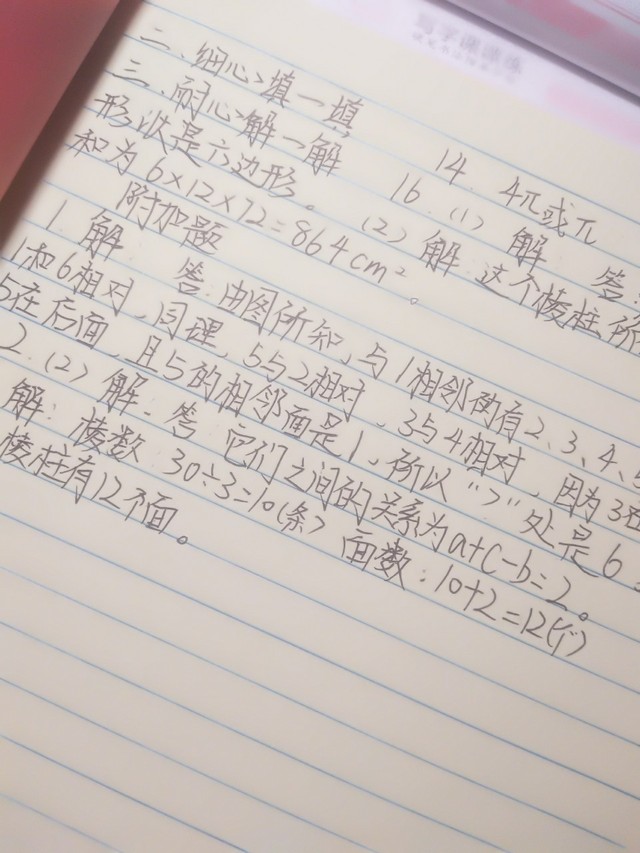 二、细心填一填 14. 4π或π
三、耐心解一解 16. (1) 解 答:
形状是六边形。 (2) 解:这个棱柱所
和为 6×12×72=864cm²。
附加题
1. 解 答:由图所知,与1相邻的有2、3、4、5
1和6相对,同理,5与2相对,3与4相对,因为3在
5在后面,且5的相邻面是1,所以"?"处是6
2.(2) 解. 答 它们之间的关系为a+c-b=2。
解: 棱数:30÷3=10(条) 面数:10+2=12(个)
棱柱有12个面。